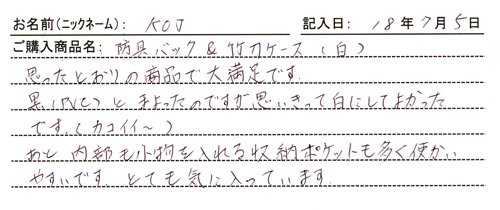 お名前(ニックネーム): KOJ 記入日: 18年7月5日
ご購入商品名: 防具バック&竹刀ケース(白)
思ったとおりの商品で大満足です.
黒(PVC)とまよったのですが思いきって白にしてよかった
です.(カコイイ~)
あと 内部も小物を入れる収納ポケットも多く使かい
やすいです. とても気に入っています